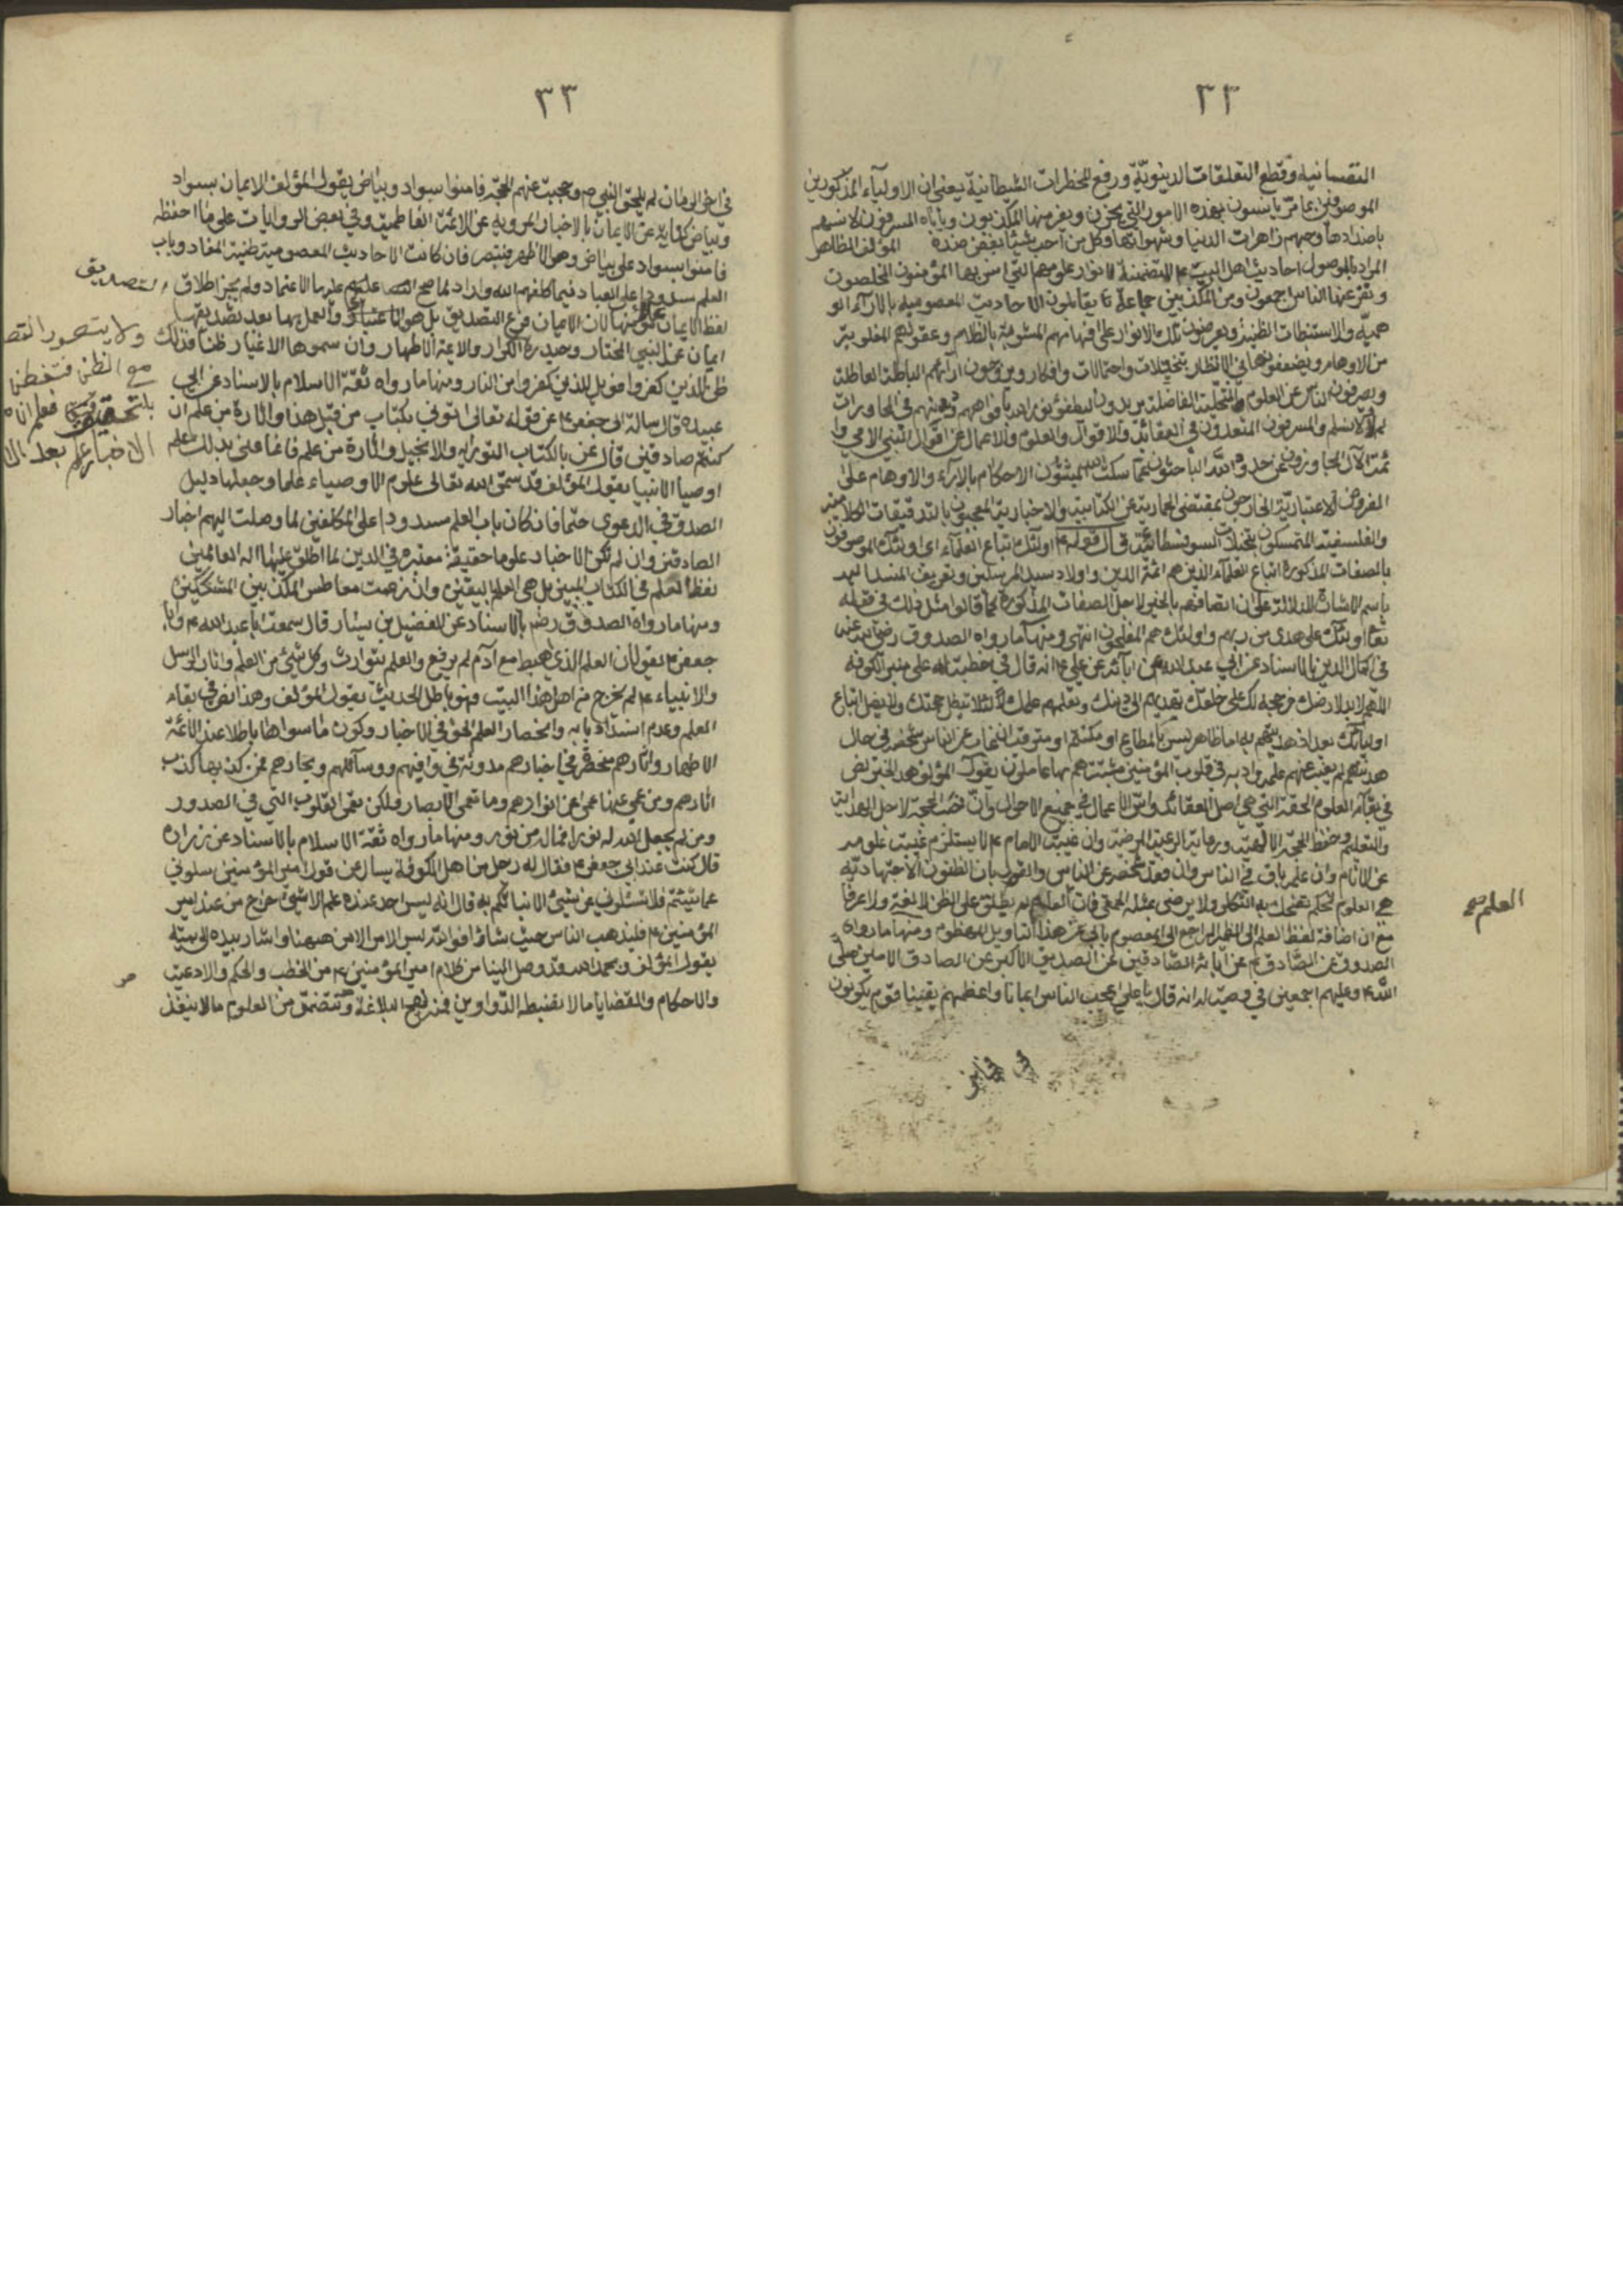 ٣٢
النفسانية وقطع التعلقات الدنيوية ورفع الخطرات الشيطانية يعني ان الاولياء المذكورين
الموصوفين بما مر يانسون بهذه الامور التي يحزن ويفر منها المكذبون وياباه المسرفون لانسهم
باضدادها وحبهم زاهرات الدنيا وشهواتها وكل من احب شيئا يبغض ضده المؤلف
المراد بالموصول احاديث اهل البيت ع المتضمنة لانوار علومهم التي استن بها المؤمنون المخلصون
ونفر عنها الناس اجمعون ومن المكذبين جماعة يقابلون الاحاديث المعصومية بالآراء الو
همية والاستنباطات الظنية ويعرضون تلك الانوار على افهامهم المشوبة بالظلام وعقولهم المغلوبة
من الاوهام ويضعفونها في الانظار بتخيلات واحتمالات وافكار ويروجون آرائهم الباطلة العاطلة
ويصرفون الناس عن العلوم الفاضلة يريدون ليطفؤا نور الله بافواههم
والمسرفون المتعدون في العقائد والاقوال والعلوم والاعمال عن اقوال النبي الامي وا
ئمة الآل المجاوزون عن حدود الله الباحثون عما سكت الله المثبتون الاحكام بالآراء والاوهام على
الفروض الاعتبارية الخارجون بمقتضى العارية عن الكتابية والاخبارية المعجبون بالتدقيقات الكلامية
والفلسفية المتمسكون السوفسطائية قال قوله ع اولئك اتباع العلماء اى اولئك الموصوفون
بالصفات المذكورة اتباع العلماء الذين هم ائمة الدين واولاد سيد المرسلين وتعريف المسند اليه
باسم الاشارة للدلالة على ان اتصافهم بالخبر لاجل الصفات المذكورة كما قالوا مثل ذلك في قوله
تعالى اولئك على هدى من ربهم واولئك هم المفلحون انتهى ومنها ما رواه الصدوق رضي الله عنه
في اكمال الدين بالاسناد عن ابي عبد الله عن آبائه عن علي ع انه قال في خطبة له على منبر الكوفة
اللهم لابد لارضك من حجة لك على خلقك يهديهم الى دينك ويعلمهم علمك لئلا تبطل حجتك ولا يضل اتباع
اوليائك بعد اذ هديتهم به اما ظاهر ليس بالمطاع او مكتتم او مترقب ان غاب عن الناس شخصه في حال
هدنتهم لم يغب عنهم علمه وادابه في قلوب المؤمنين مثبتة هم بها عاملون يقول المؤلف هذا الخبر نص
في بقاء العلوم الحقة التي هي اصل العقائد واس الاعمال في جميع الاحوال وان نصب الحجة لاجل الهداية
والتعليم وحفظ الحجة الالهية ورعاية الرعية المرضية وان غيبة الامام ع لا يستلزم غيبة علومه
عن الانام وان علمه باق في الناس وان فقد شخصه عن الناس والقول بان الظنون الاجتهادية
هي العلوم تضحك به الثكلى ولا يرضى بمثله الحمقى فان العلم لم يطلق على الظن لا لغة ولا عرفا
مع ان اضافة لفظ العلم الى الضمير الراجع الى المعصوم يأبى عن هذا التاويل ومنها ما رواه
الصدوق عن الصادق ع عن آبائه الصادقين عن الصديق الاكبر عن الصادق الامين صلى
الله عليه وعليهم اجمعين في وصية له انه قال يا علي اعجب الناس ايمانا واعظمهم يقينا قوم يكونون
في آخر
العلم صح
٣٣
في اخر الزمان لم يلحقوا النبي ص وحجبت عنهم الحجة فامنوا بسواد وبياض يقول المؤلف الايمان بسواد
وبياض كناية عن الايمان بالاخبار المروية عن الائمة الفاطمية وفي بعض الروايات على ما احفظه
فامنوا بسواد على بياض وهو الاظهر فتبصر فان كانت الاحاديث المعصومية ظنية المفاد وباب
العلم مسدودا على العباد فيما كلفهم الله واراد لما صح عليها الاعتماد ولم يجز اطلاق
لفظ الايمان لان الايمان فرع التصديق بل هو والعمل بها بعد تصديقها
ايمان عند النبي المختار وحيدرة الكرار والائمة الاطهار وان سموها الاغيار ظنا فذلك
ظن الذين كفروا فويل للذين كفروا من النار ومنها ما رواه ثقة الاسلام بالاسناد عن ابي
عبيدة قال سالت ابا جعفر ع عن قوله تعالى ائتوني بكتاب من قبل هذا او اثارة من علم ان
كنتم صادقين قال عنى بالكتاب التورية والانجيل واثارة من علم فانما عنى بذلك علم
اوصياء الانبياء يقول المؤلف قد سمى الله تعالى علوم الاوصياء علما وجعلها دليل
الصدق في الدعوى حتما فان كان باب العلم مسدودا على المكلفين لما وصلت اليهم اخبار
الصادقين وان لم تكن الاخبار علوما حقيقة معتبرة في الدين لما اطلق عليها اله العالمين
لفظ العلم في الكتاب المبين بل هي العلم اليقين وان زعمت معاطس المكذبين المشككين
ومنها ما رواه الصدوق رض بالاسناد عن الفضيل بن يسار قال سمعت ابا عبد الله ع وابا
جعفر ع يقولان العلم الذي اهبط مع آدم لم يرفع والعلم يتوارث وكل شيء من العلم واثار الرسل
والانبياء ع لم يخرج من اهل هذا البيت فهو باطل الحديث يقول المؤلف وهذا نص في بقاء
العلم وعدم انسداد بابه وانحصار العلم الحق في الاخبار وكون ما سواها باطلا عند الائمة
الاطهار واثارهم منحصرة في اخبارهم مدونة في وافيهم ووسائلهم وبحارهم فمن كذب بها كذب
اثارهم ومن عمي عنها عمي عن انوارهم وما تعمى الابصار ولكن تعمى القلوب التي في الصدور
ومن لم يجعل الله له نورا فما له من نور ومنها ما رواه ثقة الاسلام بالاسناد عن زرارة
قال كنت عند ابي جعفر ع فقال له رجل من اهل الكوفة يسال عن قول امير المؤمنين سلوني
عما شئتم فلا تسئلوني عن شيء الا نباتكم به قال انه ليس احد عنده علم الا شيء خرج من عند امير
المؤمنين ع فليذهب الناس حيث شاؤا فوالله ليس الامر الا من ههنا واشار بيده الى بيته
يقول المؤلف وبحمد الله قد وصل الينا من كلام امير المؤمنين ع من الخطب والحكم والادعية
والاحكام والقضايا ما لا تضبطه الدواوين فمنه نهج البلاغة وتتضمن من العلوم ما لا ينفد
التصديق
ولا يتصور التصد
مع الظن فتفطن
فعلم ان
الاخبار علم